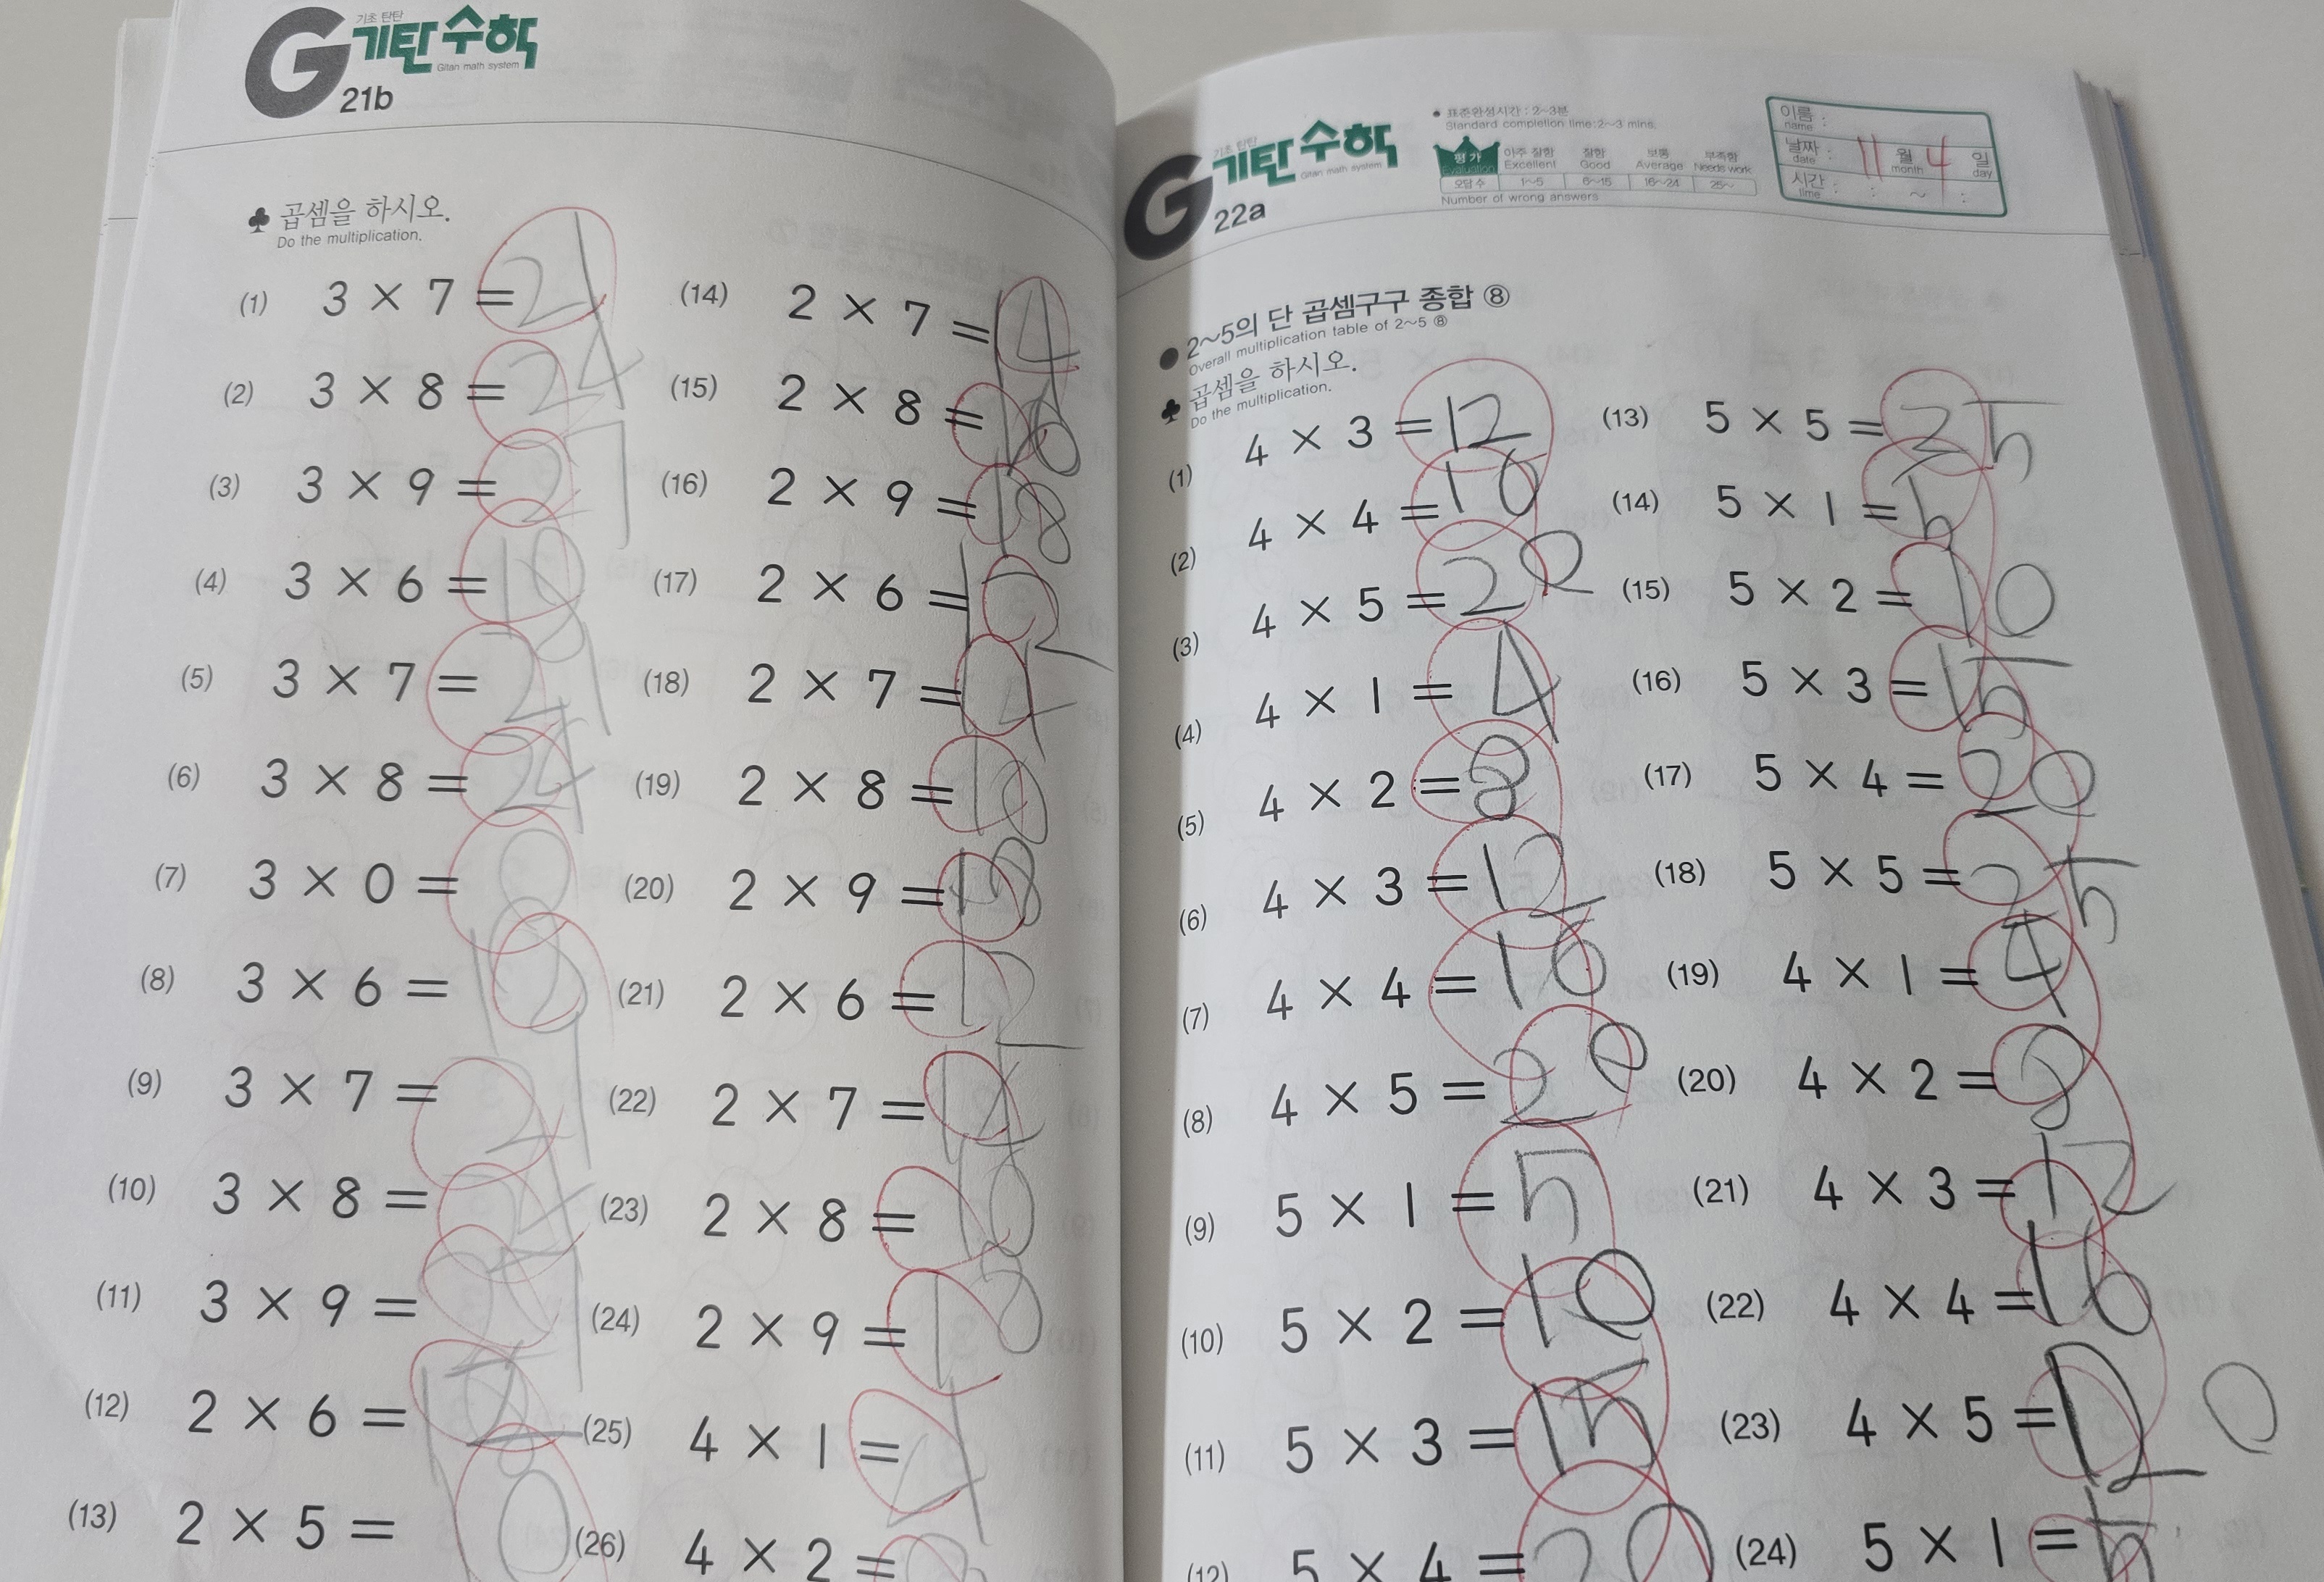 G 기초 탄탄 기탄수학
Gitan math system
21b
♣ 곱셈을 하시오.
Do the multiplication.
(1) 3 × 7 = 21
(2) 3 × 8 = 24
(3) 3 × 9 = 27
(4) 3 × 6 = 18
(5) 3 × 7 = 21
(6) 3 × 8 = 24
(7) 3 × 0 = 0
(8) 3 × 6 = 18
(9) 3 × 7 = 21
(10) 3 × 8 = 24
(11) 3 × 9 = 27
(12) 2 × 6 = 12
(13) 2 × 5 = 10
(14) 2 × 7 = 14
(15) 2 × 8 = 16
(16) 2 × 9 = 18
(17) 2 × 6 = 12
(18) 2 × 7 = 14
(19) 2 × 8 = 16
(20) 2 × 9 = 18
(21) 2 × 6 = 12
(22) 2 × 7 = 14
(23) 2 × 8 = 16
(24) 2 × 9 = 18
(25) 4 × 1 = 4
(26) 4 × 2 = 8
G 기초 탄탄 기탄수학
Gitan math system
22a
● 표준완성시간 : 2~3분
Standard completion time:2~3 mins.
평가 아주 잘함 잘함 보통 부족함
Evaluation Excellent Good Average Needs work
오답 수 1~5 6~15 16~24 25~
Number of wrong answers
이름 :
name
날짜 : 11 월 4 일
date month day
시간 : : ~ :
time
● 2~5의 단 곱셈구구 종합 ⑧
Overall multiplication table of 2~5 ⑧
♣ 곱셈을 하시오.
Do the multiplication.
(1) 4 × 3 = 12
(2) 4 × 4 = 16
(3) 4 × 5 = 20
(4) 4 × 1 = 4
(5) 4 × 2 = 8
(6) 4 × 3 = 12
(7) 4 × 4 = 16
(8) 4 × 5 = 20
(9) 5 × 1 = 5
(10) 5 × 2 = 10
(11) 5 × 3 = 15
(12) 5 × 4 = 20
(13) 5 × 5 = 25
(14) 5 × 1 = 5
(15) 5 × 2 = 10
(16) 5 × 3 = 15
(17) 5 × 4 = 20
(18) 5 × 5 = 25
(19) 4 × 1 = 4
(20) 4 × 2 = 8
(21) 4 × 3 = 12
(22) 4 × 4 = 16
(23) 4 × 5 = 20
(24) 5 × 1 = 5